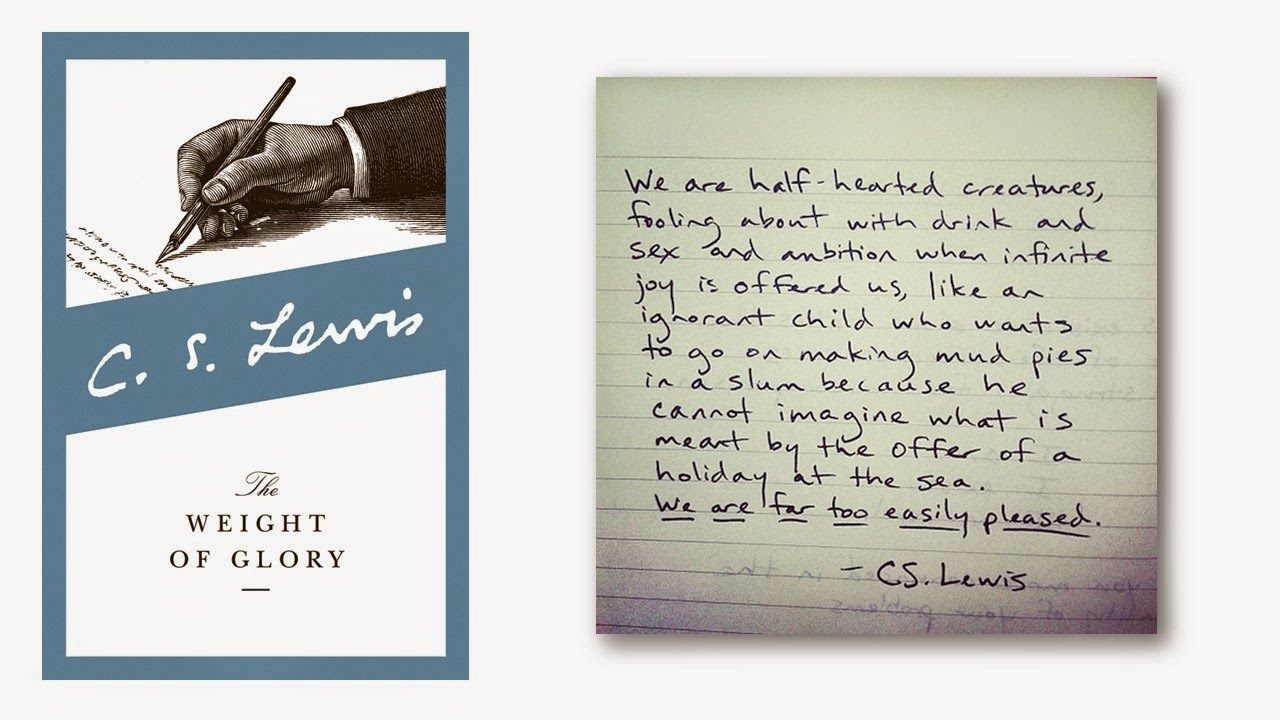 C. S. Lewis
The
WEIGHT
OF GLORY
We are half-hearted creatures,
fooling about with drink and
sex and ambition when infinite
joy is offered us, like an
ignorant child who wants
to go on making mud pies
in a slum because he
cannot imagine what is
meant by the offer of a
holiday at the sea.
We are far too easily pleased.
- CS. Lewis